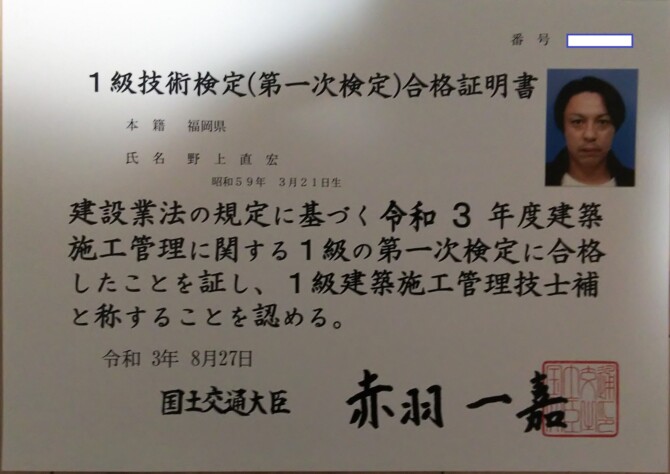 番 号
1級技術検定(第一次検定)合格証明書
本 籍 福岡県
氏 名 野 上 直 宏
昭和59年 3月21日生
建設業法の規定に基づく令和 3 年度建築
施工管理に関する1級の第一次検定に合格
したことを証し、1級建築施工管理技士補
と称することを認める。
令和 3年 8月27日
国土交通大臣 赤羽 一嘉